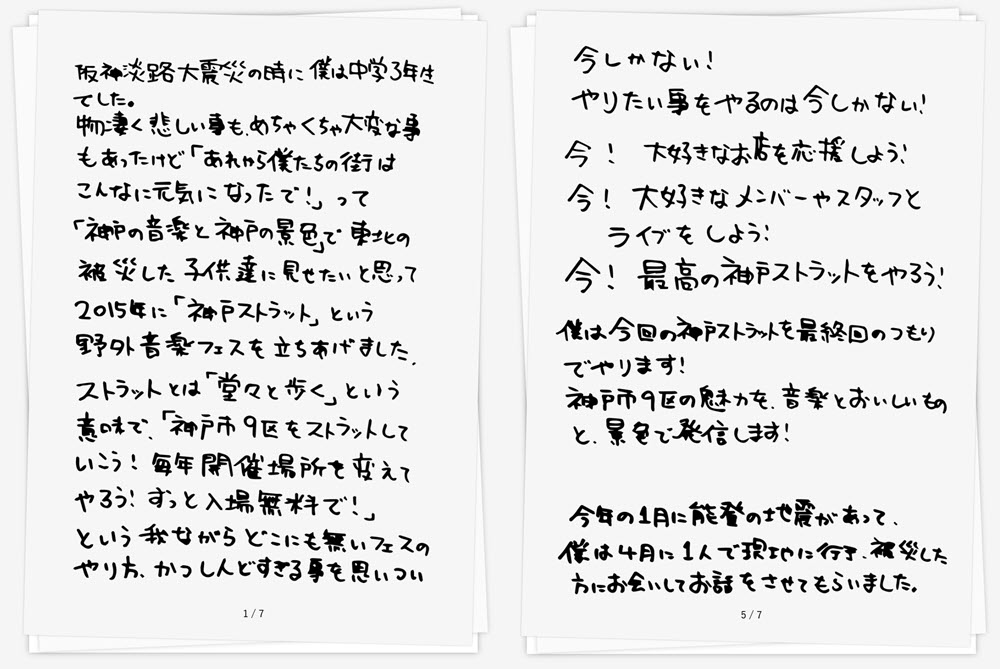 阪神淡路大震災の時に僕は中学3年生
でした。
物凄く悲しい事も、めちゃくちゃ大変な事
もあったけど「あれから僕たちの街は
こんなに元気になったで！」って
「神戸の音楽と神戸の景色」で東北の
被災した子供達に見せたいと思って
2015年に「神戸ストラット」という
野外音楽フェスを立ちあげました。
ストラットとは「堂々と歩く」という
意味で、「神戸市9区をストラットして
いこう！毎年開催場所を変えて
やろう！ずっと入場無料で！」
という我ながらどこにも無いフェスの
やり方、かつしんどすぎる事を思いつい
1/7
今しかない！
やりたい事をやるのは今しかない！
今！大好きなお店を応援しよう！
今！大好きなメンバーやスタッフと
ライブをしよう！
今！最高の神戸ストラットをやろう！
僕は今回の神戸ストラットを最終回のつもり
でやります！
神戸市9区の魅力を、音楽とおいしいもの
と、景色で発信します！
今年の1月に能登の地震があって、
僕は4月に1人で現地に行き、被災した
方にお会いしてお話をさせてもらいました。
5/7